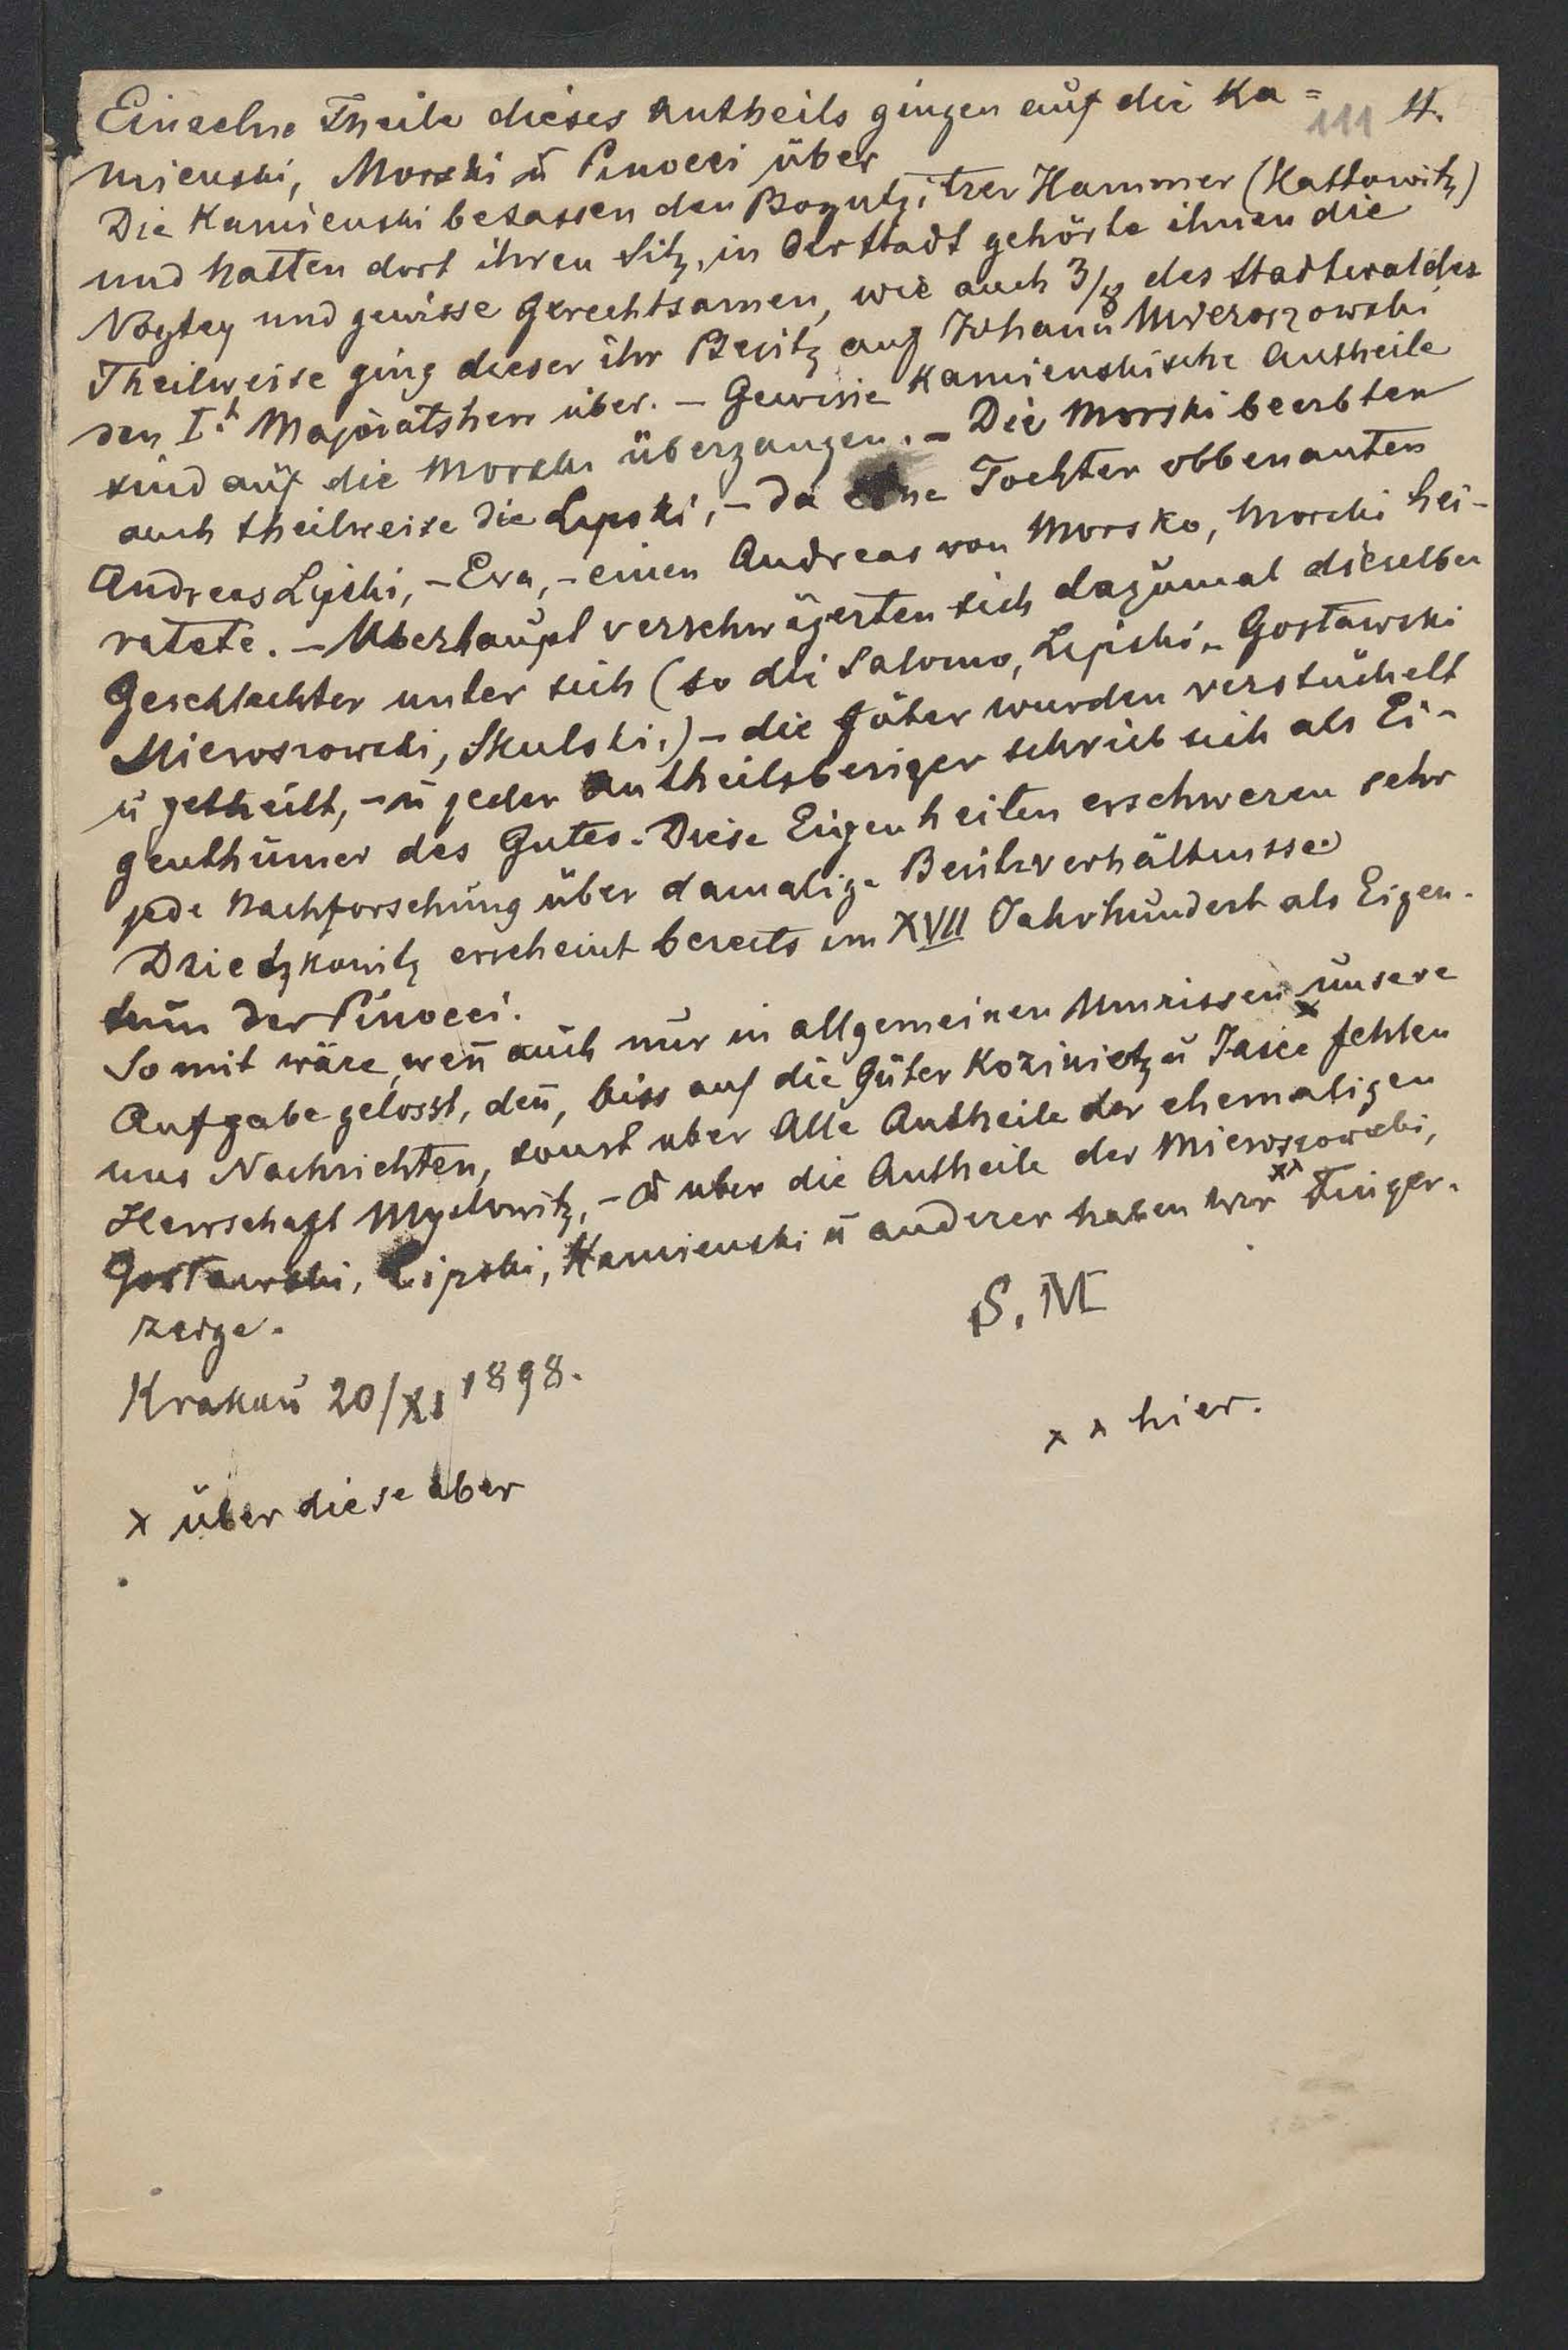 Einzelne Theile dieses Antheils gingen auf die Ka=
111 4.
mienski, Morski ū Pinocci über
Die Kamienski besassen den Bogutzitzer Hammer (Kattowitz)
und hatten dort ihren Sitz, in der Stadt gehörte ihnen die
Vogtey und gewisse Gerechtsamen, wie auch 3/8 des Stadtwaldes
Theilweise ging dieser ihr Besitz auf Johann Mieroszowski
den I.t Majoratsherr über. – Gewisse Kamienskische Antheile
sind auf die Morski übergangen. – Die Morski beerbten
auch theilweise die Lipski, – da eine Tochter obbenanten
Andreas Lipski, – Eva, – einen Andreas von Morsko, Morski hei-
ratete. – Uberhaupt verschwägerten sich dazumal dieselben
Geschlechter unter sich (so die Salomo, Lipski, Gosławski
Mieroszowski, Skulski,) – die Güter wurden verstückelt
ū getheilt, – ū jeder Antheilsbesizer schrieb sich als Ei-
genthümer des Gutes. Diese Eigenheiten erschweren sehr
jede Nachforschung über damalige Besitzverhältnisse.
Dziedzkowitz erscheint bereits im XVII Jahrhundert als Eigen-
tum der Pinocci.
Somit wäre, weñ auch nur in allgemeinen Umrissen x unsere
Aufgabe gelosst, deñ, biss auf die Güter Kozinietz ū Jasice fehlen
uns Nachrichten, sonst uber Alle Antheile der ehemaligen
Herrschaft Myslowitz, – ū uber die Antheile der Mieroszowski,
Gosławski, Lipski, Kamienski ū anderer haben wir xx Finger-
zeige.
S. M
Krakau 20/XI 1898.
x x hier.
x über diese aber